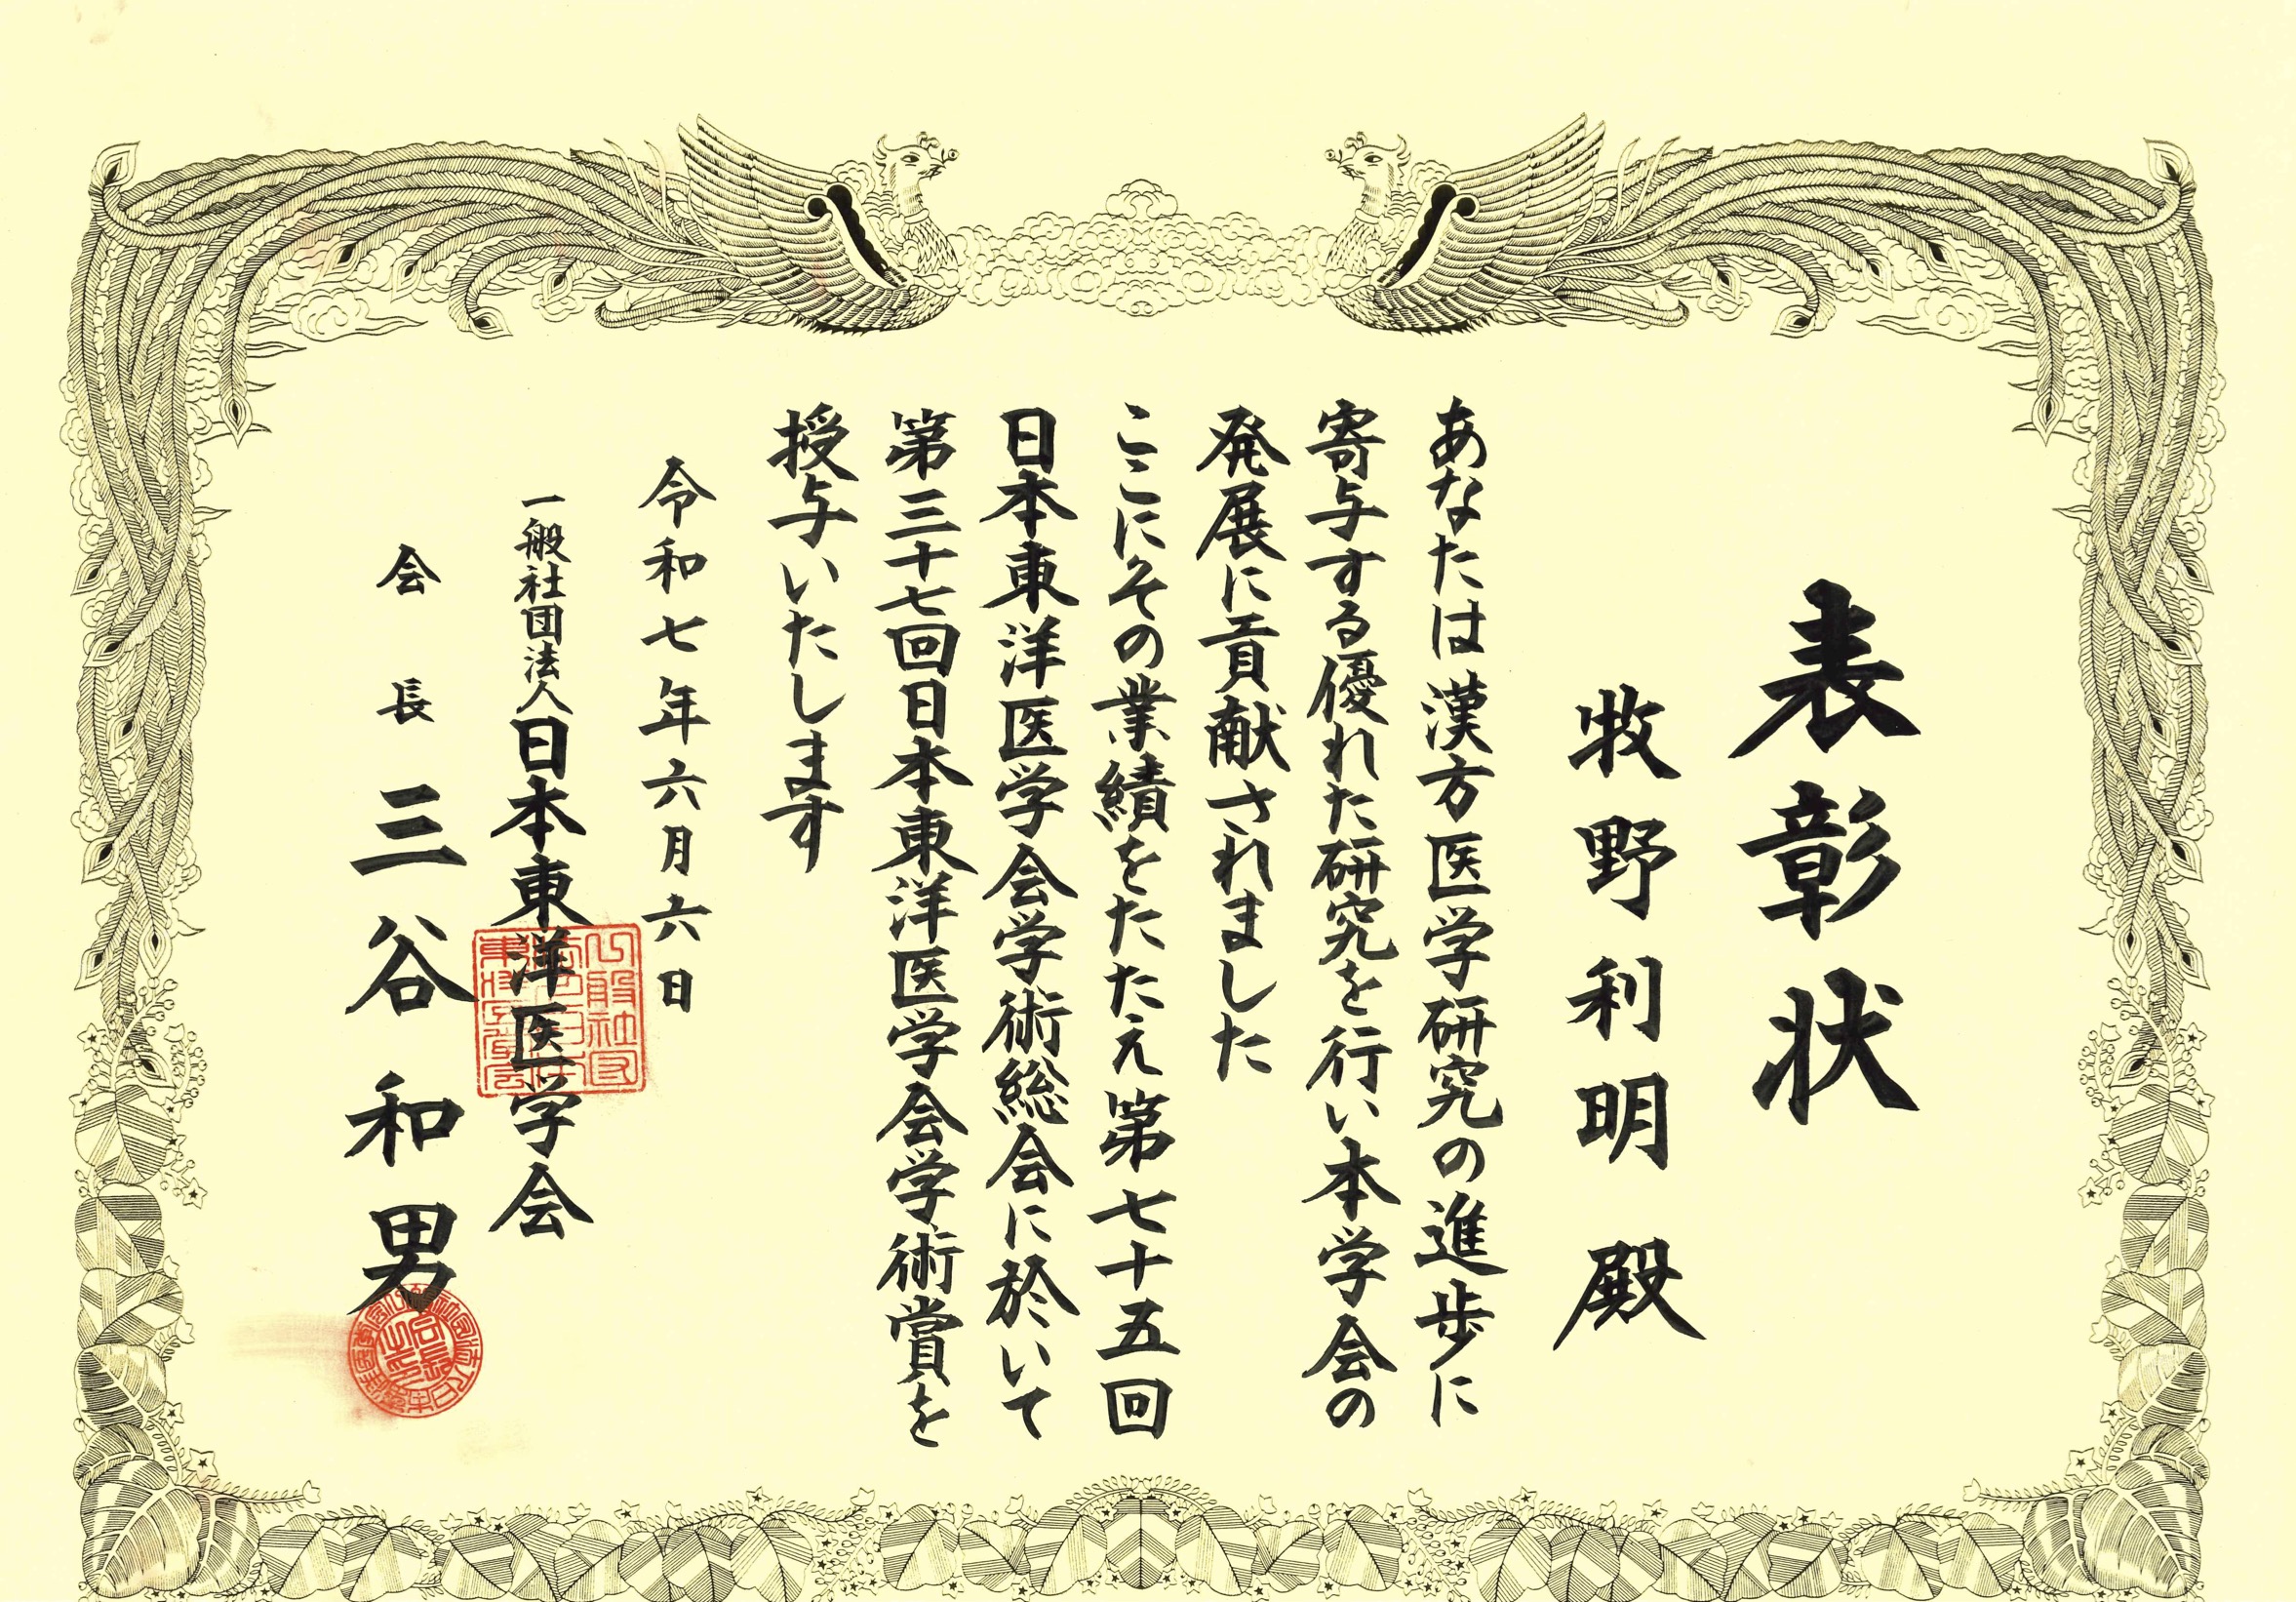 表彰状
牧野利明 殿
あなたは漢方医学研究の進歩に
寄与する優れた研究を行い本学会の
発展に貢献されました
ここにその業績をたたえ第七十五回
日本東洋医学会学術総会に於いて
第三十七回日本東洋医学会学術賞を
授与いたします
令和七年六月六日
一般社団法人日本東洋医学会
会長 三谷和男